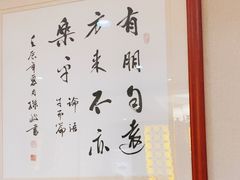 有朋自遠
方来不亦
樂乎 論語
学而篇
壬辰年夏月